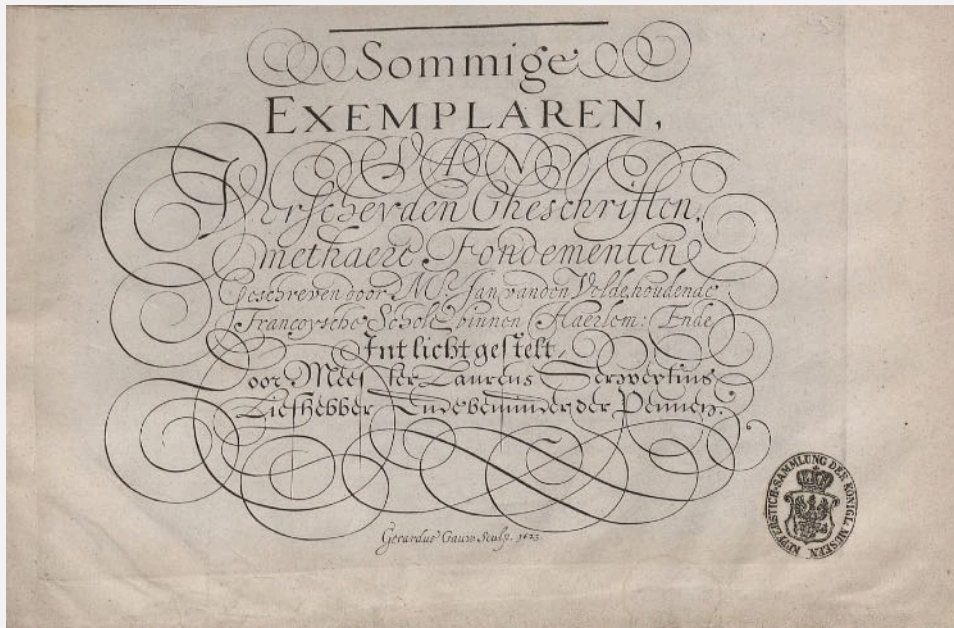 Sommige
EXEMPLAREN,
VAN
Verscheyden Gheschriften,
met haere Fondementen
Geschreven door Mr. Jan vanden Velde, houdende
Françoysche Schole binnen Haerlem: Ende
Int licht gestelt,
Door Meester Laurens
Liefhebber Ende beminder der Pennen.
Gerardus Gauw Sculp. 1623
KUPFERSTICH-SAMMLUNG DER KÖNIGL. MUSEEN